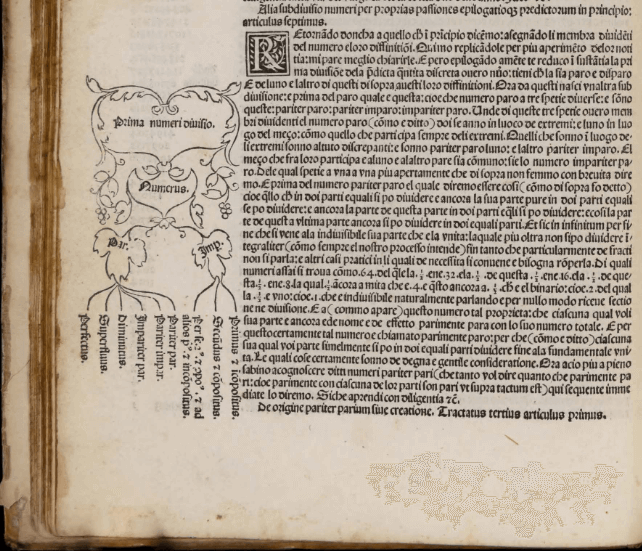 Alia subdiuisio numeri per proprias passiones epilogatioq̃ predictorum in principio:
articulus septimus.
REtornãdo doncha a quello ch̃ i pricipio dicẽmo: asegnãdo li membra diuidẽti
del numero e loro diffinitiõi. Qui mo replicãdole per piu aperimẽto
tia: mi pare meglio chiarirle. E pero epilogãdo amẽte te reduco
E de luno e laltro di questi di sopra auesti loro diffinitioni. Ora da questi nasci vnaltra sub
diuisione: e prima del paro quale e questa: cioe che numero paro a tre spetie diuerse: e sõno
queste: pariter paro: pariter imparo: impariter paro. Unde di queste tre spetie ouero mem
bri diuidenti el numero paro (cõmo e ditto) doi se anno in luoco de extremi: e luno in luo
go del meço: cõmo quello che participa sempre deli extremi. Quelli che sonno i luogo de
li extremi sonno altuto discrepanti: e sonno pariter paro luno: e laltro pariter imparo. El
meço che fra loro participa e aluno e alaltro pare sia cõmuno: sie lo numero impariter pa
ro. Dele qual spetie a vna a vna piu apertamente che di sopra non femmo con breuita dire
mo. E prima del numero pariter paro el quale diremo essere cosi (cõmo di sopra fo detto)
cioe q̃llo ch̃ in doi parti equali si po diuidere e ancora la sua parte pure in doi parti equali
se po diuidere: e ancora la parte de questa parte in doi parti eq̃li si po diuidere: e cosi la par
te de questa vltima parte ancora si po diuidere in doi equali parti. Et sic in infinitum per fi
ne che si vene ala indiuisibile sua parte che e la vnita: laquale piu oltra non si po diuidere i
tegraliter (cõmo sempre el nostro processo intende) fin tanto che particularmente de fracti
non si parla: e altri casi pratici in li quali de necessita si conuene e bisogna rõperla. Di quali
numeri assai si troua cõmo. 64. del q̃le la. ½. ene. 32. ela. ½. de questa. ½. ene. 16. ela. ½. de que
sta. ½. ene. 8. la qual. ½. ãcora a mita che e. 4. e q̃sto ancora a. ½. ch̃ e el binario: cioe. 2. del qual
la. ½. e vno: cioe. 1. che e indiuisibile naturalmente parlando e per nullo modo riceue sectio
ne ne diuisione. E a (commo apare) questo numero tal proprieta: che ciascuna qual voli
sua parte e ancora e de nome e de effetto parimente para con lo suo numero totale. E per
questo certamente tal numero e chiamato parimente paro: per che (cõmo e ditto) ciascuna
sua qual voi parte similmente si po in doi equali parti diuidere fine ala fundamentale vni
ta. Le quali cose certamente sonno de degna e gentile consideratione. Ora acio piu a pieno
sabino acognoscere ditti numeri pariter pari (che tanto vol dire quanto che parimente pa
ri: cioe parimente con ciascuna de lor parti son pari vt supra tactum est) qui sequente imme
diate lo diremo. Si che aprendi con diligentia ⁊c̃.
De origine pariter parium siue creatione. Tractatus tertius articulus primus.
Prima numeri diuisio.
Numerus.
Par.
Imp.
Perfectus.
Superfluus.
Diminutus.
Impariter par.
Pariter impar.
Pariter par.
Per se: 2°. ⁊ ꝓpo°. ⁊ ad
alios p°. ⁊ incõpositus.
Secũdus ⁊ cõpositus.
Primus ⁊ icõpositus.